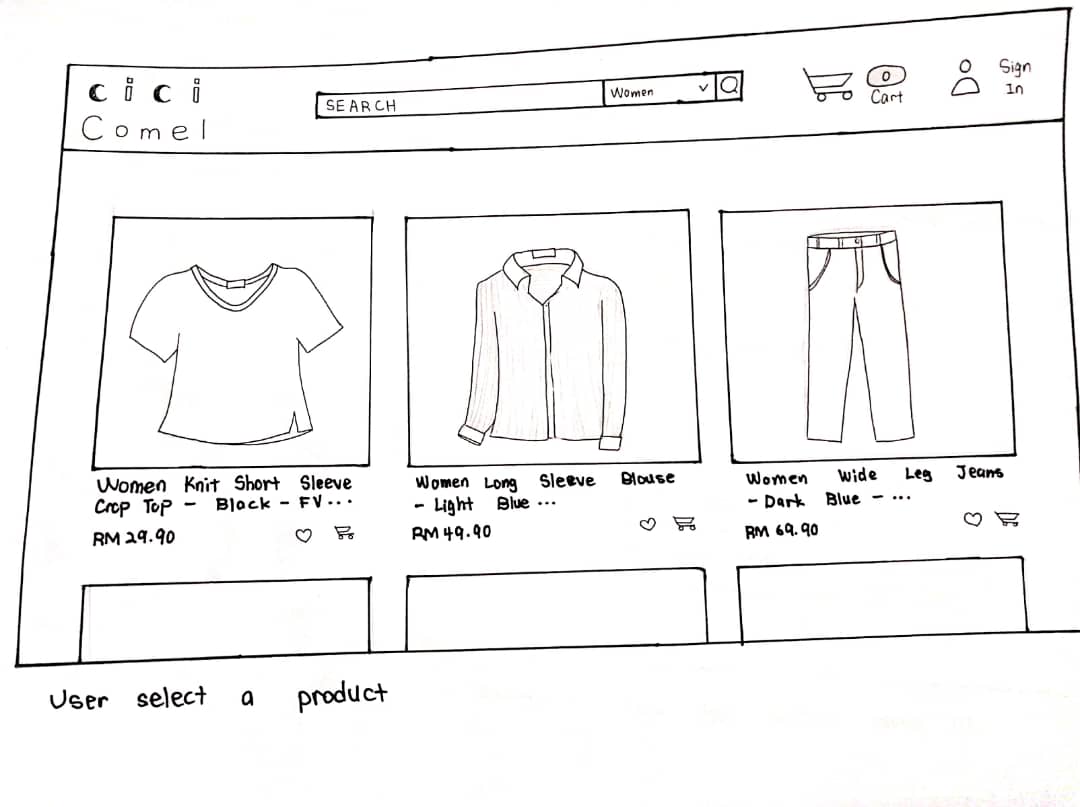 cici
Comel
SEARCH
Women
0
Cart
Sign
In
Women Knit Short Sleeve
Crop Top - Black - FV...
RM 29.90
Women Long Sleeve Blouse
- Light Blue ...
RM 49.90
Women Wide Leg Jeans
- Dark Blue - ...
RM 69.90
User select a product